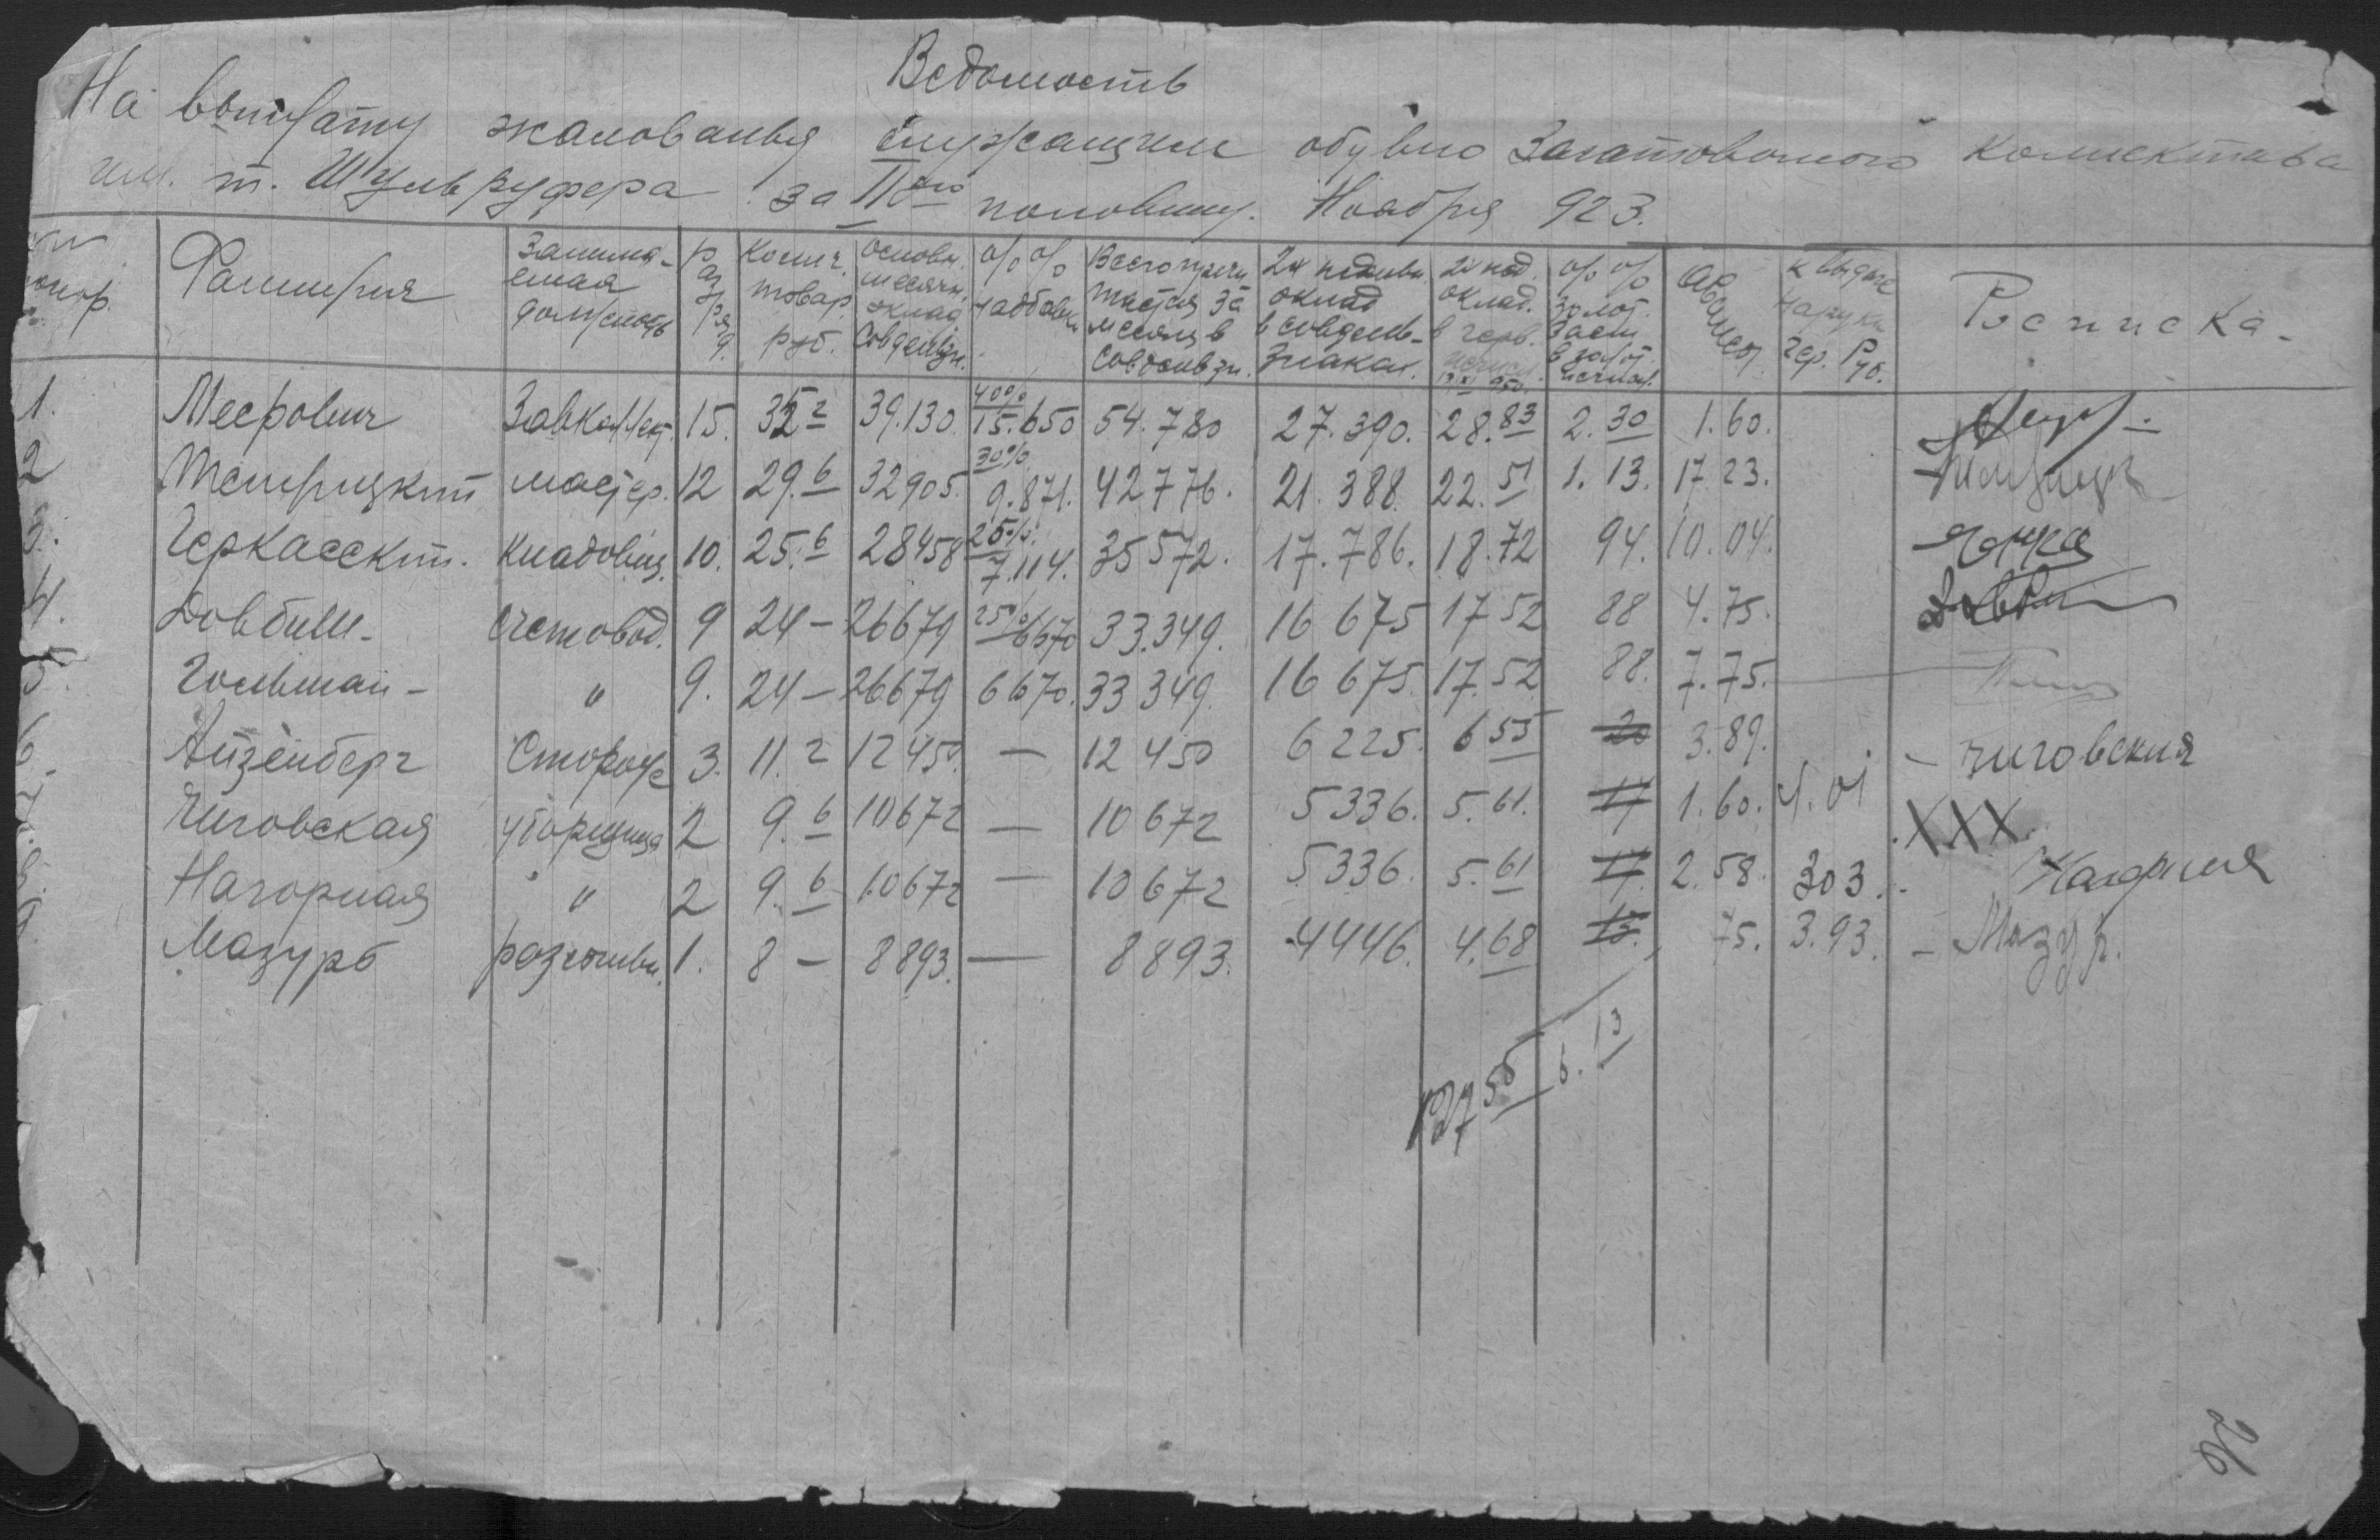 Ведомость
На выплату жалованья служащим обувно Заготовочного коллектива
им. т. Шульруфера за IIую половину Ноября 923.
Фамилия Занима-емая должность Разряд Колич. товар. руб. Основн. месячн. оклад Совдензн. % % надбавки Всего причитается за месяц в Совдензн. 2х недельн оклад в совден-знаках. 2х нед. оклад. в черв. % % золот. заем в золот. исчисл. Аванс К выдаче На руки Чер. Руб. Росписка.
1. Меерович Завколлект. 15. 35 2 39.130. 40% 15.650 54.780 27.390. 28.83 2.30 1.60.
2 мастер. 12 29.6 32905. 30% 9.871. 42776. 21.388. 22.51 1.13. 17.23.
3. Черкасский. Кладовщ. 10. 25.6 28458 25% 7.114. 35572. 17.786. 18.72 94. 10.04.
4. Довбиш- Счетовод. 9 24- 26679 25% 6670 33.349. 16675 17.52 88 4.75.
5. Гольман- " 9. 24- 26679 6670. 33349. 16675. 17.52 88. 7.75.
6. Айзенберг Сторож 3. 11.2 12450. — 12450 6225. 6 55 20 3.89. - Чиговския
7. Чиговская уборщица 2 9.6 10672 — 10672 5336. 5.61. 17 1.60. 4.01 XXX.
8. Нагорная " 2 9.6 10672 — 10672 5336. 5.61 17. 2.58. 303. - Нагорная
9. Мазур 1. 8- 8893. — 8893. 4446. 4.68 15. 75. 3.93. - Мазур.
127 55 6.13